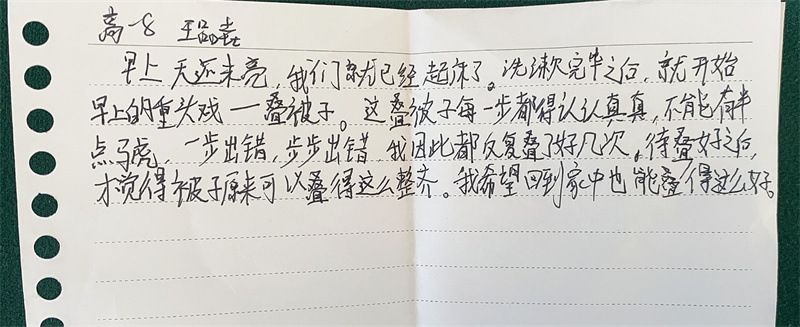 高一8 王品壹
早上天还未亮,我们就已经起床了。洗漱完毕之后,就开始
早上的重头戏一叠被子。这叠被子每一步都得认认真真,不能有半
点马虎,一步出错,步步出错,我因此都反复叠了好几次。待叠好之后,
才觉得被子原来可以叠得这么整齐。我希望回到家中也能叠得这么好。